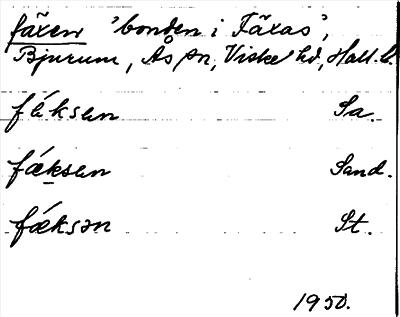 fäxen 'bonden i Fäxas',
Bjurum, Ås sn, Viske hd, Hall. l.
fä́ksen Sa.
fǽksen Sand.
fǽksən St.
1950.